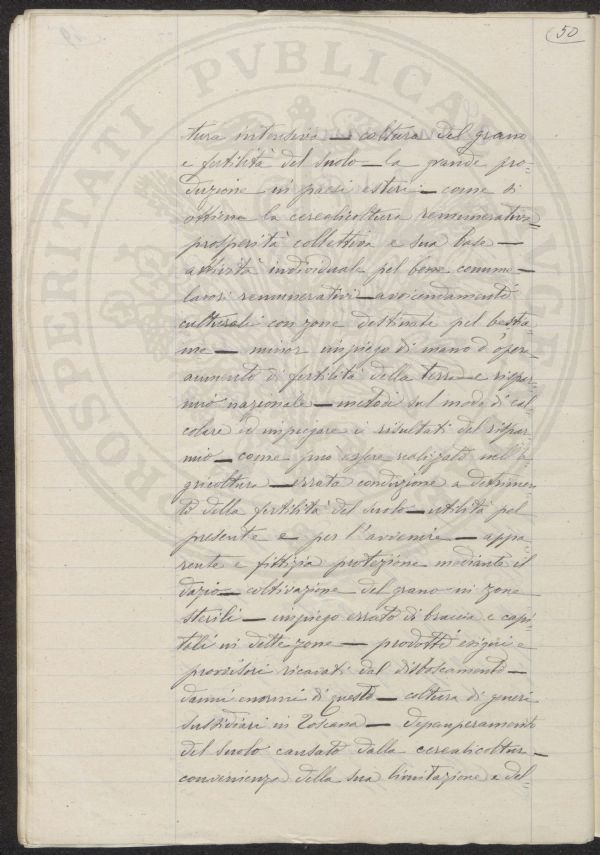 50
tura intensiva — coltura del grano
e fertilità del suolo — la grande pro-
duzione in paesi esteri — come si
ottiene la cerealicoltura remunerativa
prosperità collettiva e sua base —
attività individuale pel bene comune —
lavori remunerativi — avvicendamenti
culturali con zone destinate pel bestia-
me — minor impiego di mano d'opera
aumento di fertilità della terra e rispar-
mio nazionale — metodi sul modo di cal-
colare ed impiegare i risultati del rispar-
mio — come può essere realizzato nell'a-
gricoltura — errata conduzione a detrimen-
to della fertilità del suolo — utilità pel
presente e per l'avvenire — appa-
rente e fittizia protezione mediante il
dazio — coltivazione del grano in zone
sterili — impiego errato di braccia e capi-
tali in dette zone — prodotti esigui e
provvisori ricavati dal disboscamento —
danni enormi di questo — coltura di generi
sussidiari in Toscana — depauperamento
del suolo causato dalla cerealicoltura —
convenienza della sua limitazione e del-
PROSPERITATI PVBLICAE AVGE